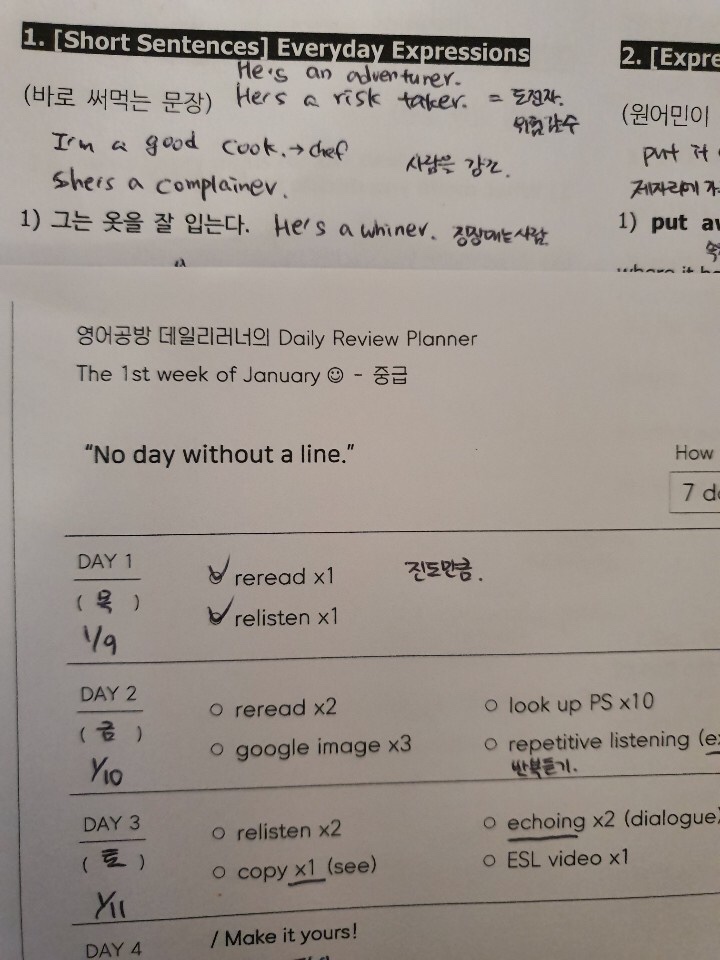 1. [Short Sentences] Everyday Expressions
He's an adventurer.
(바로 써먹는 문장) He's a risk taker. = 도전자.
위험감수
I'm a good cook. → chef
사람을 강조.
She's a complainer.
1) 그는 옷을 잘 입는다. He's a whiner. 징징대는사람
2. [Expre
(원어민이
put it
제자리에
1) put aw
영어공방 데일리러너의 Daily Review Planner
The 1st week of January ☺ - 중급
"No day without a line."
How
7 d
DAY 1
(목)
1/9
reread x1 진도만큼.
relisten x1
DAY 2
(금)
1/10
○ reread x2
○ google image x3
○ look up PS x10
○ repetitive listening (e
반복듣기.
DAY 3
(토)
1/11
○ relisten x2
○ copy x1 (see)
○ echoing x2 (dialogue)
○ ESL video x1
DAY 4
/ Make it yours!